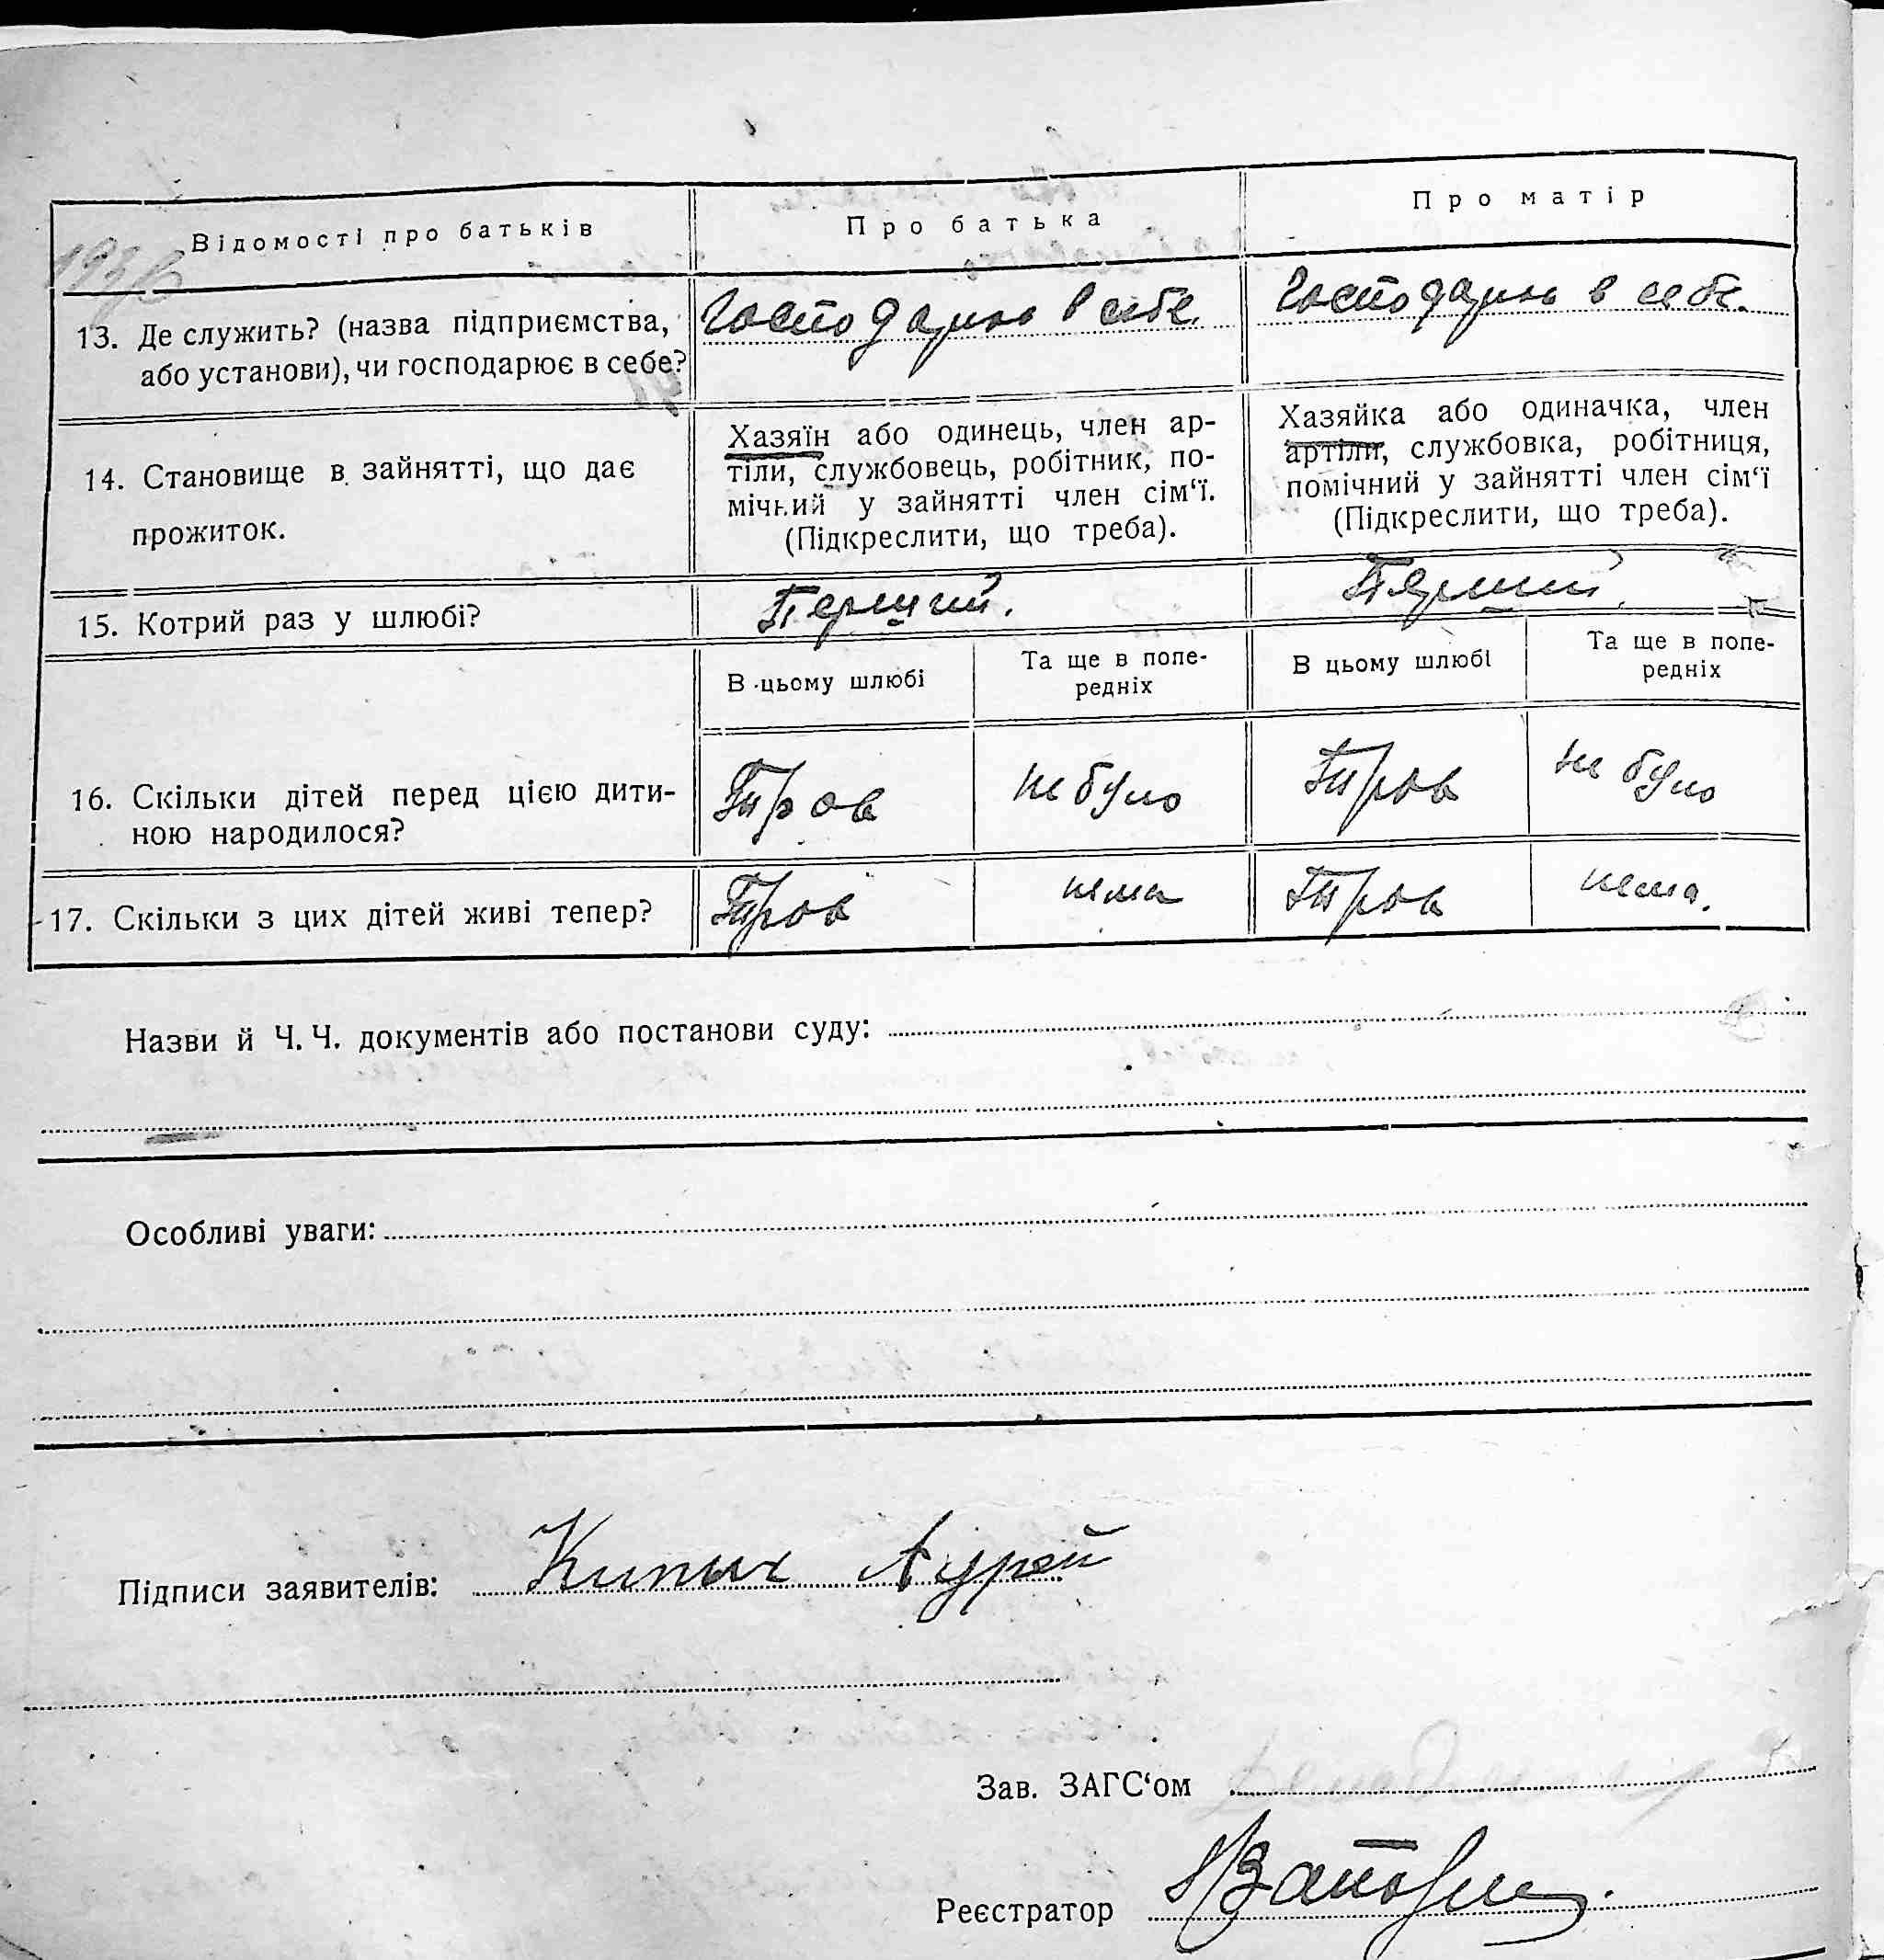 Відомості про батьків
Про батька
Про матір
13. Де служить? (назва підприємства,
або установи), чи господарює в себе?
Господарює в себе.
Господарює в себе.
14. Становище в зайнятті, що дає
прожиток.
Хазяїн або одинець, член ар-
тіли, службовець, робітник, по-
мічний у зайнятті член сім‘ї.
(Підкреслити, що треба).
Хазяйка або одиначка, член
артіли, службовка, робітниця,
помічний у зайнятті член сім‘ї
(Підкреслити, що треба).
15. Котрий раз у шлюбі?
Перший.
Перший.
В цьому шлюбі
Та ще в попе-
редніх
В цьому шлюбі
Та ще в попе-
редніх
16. Скільки дітей перед цією дити-
ною народилося?
Тров
не було
Тров
не було
17. Скільки з цих дітей живі тепер?
Тров
нема
Тров
нема.
Назви й Ч. Ч. документів або постанови суду:
Особливі уваги:
Підписи заявителів:
Зав. ЗАГС‘ом
Реєстратор